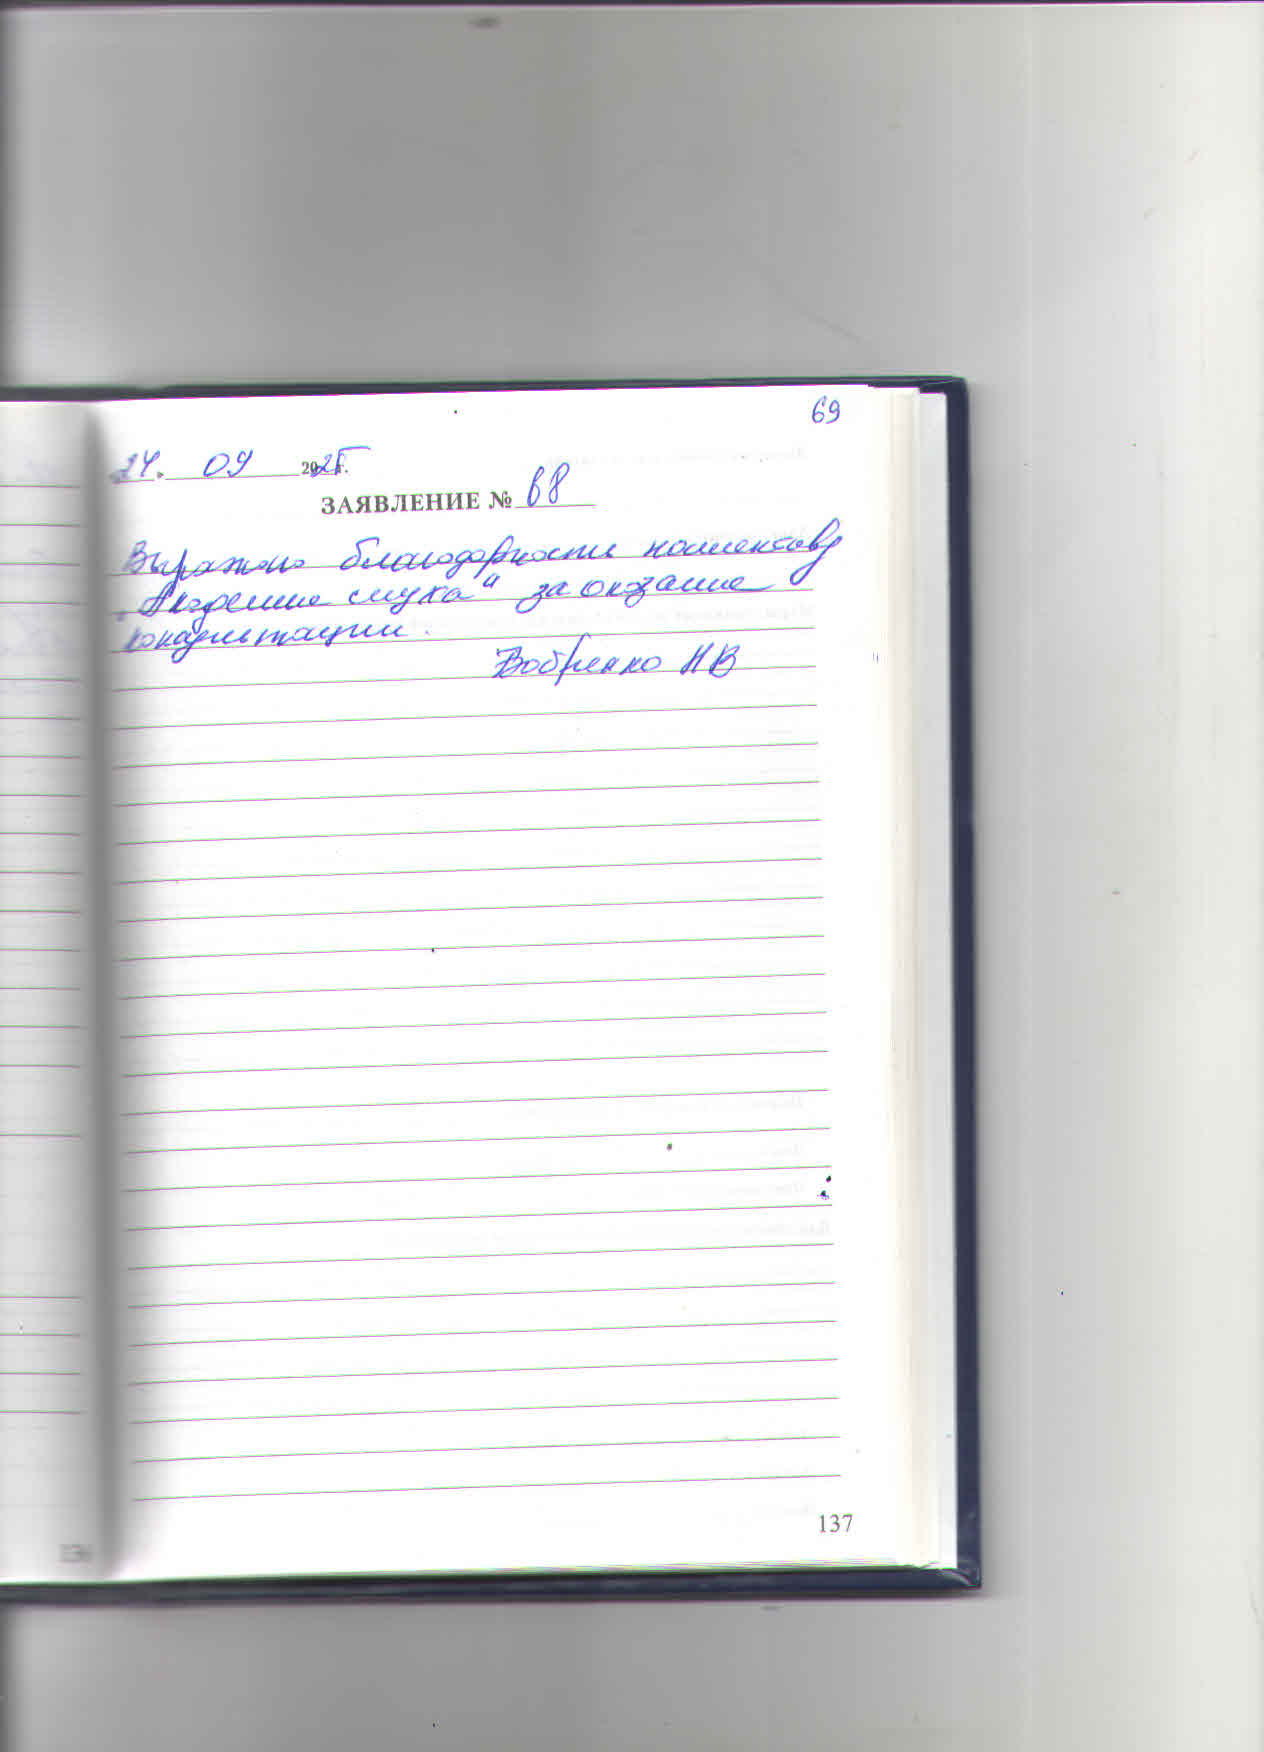 69
24. 09 2025 г.
ЗАЯВЛЕНИЕ № 68
Выражаю благодарности коллективу
"Академия слуха" за оказание
Бобренко Н В
137